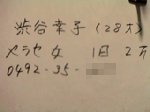 渋谷幸子(28才)
メラセ女 1日 2万
0492-35-